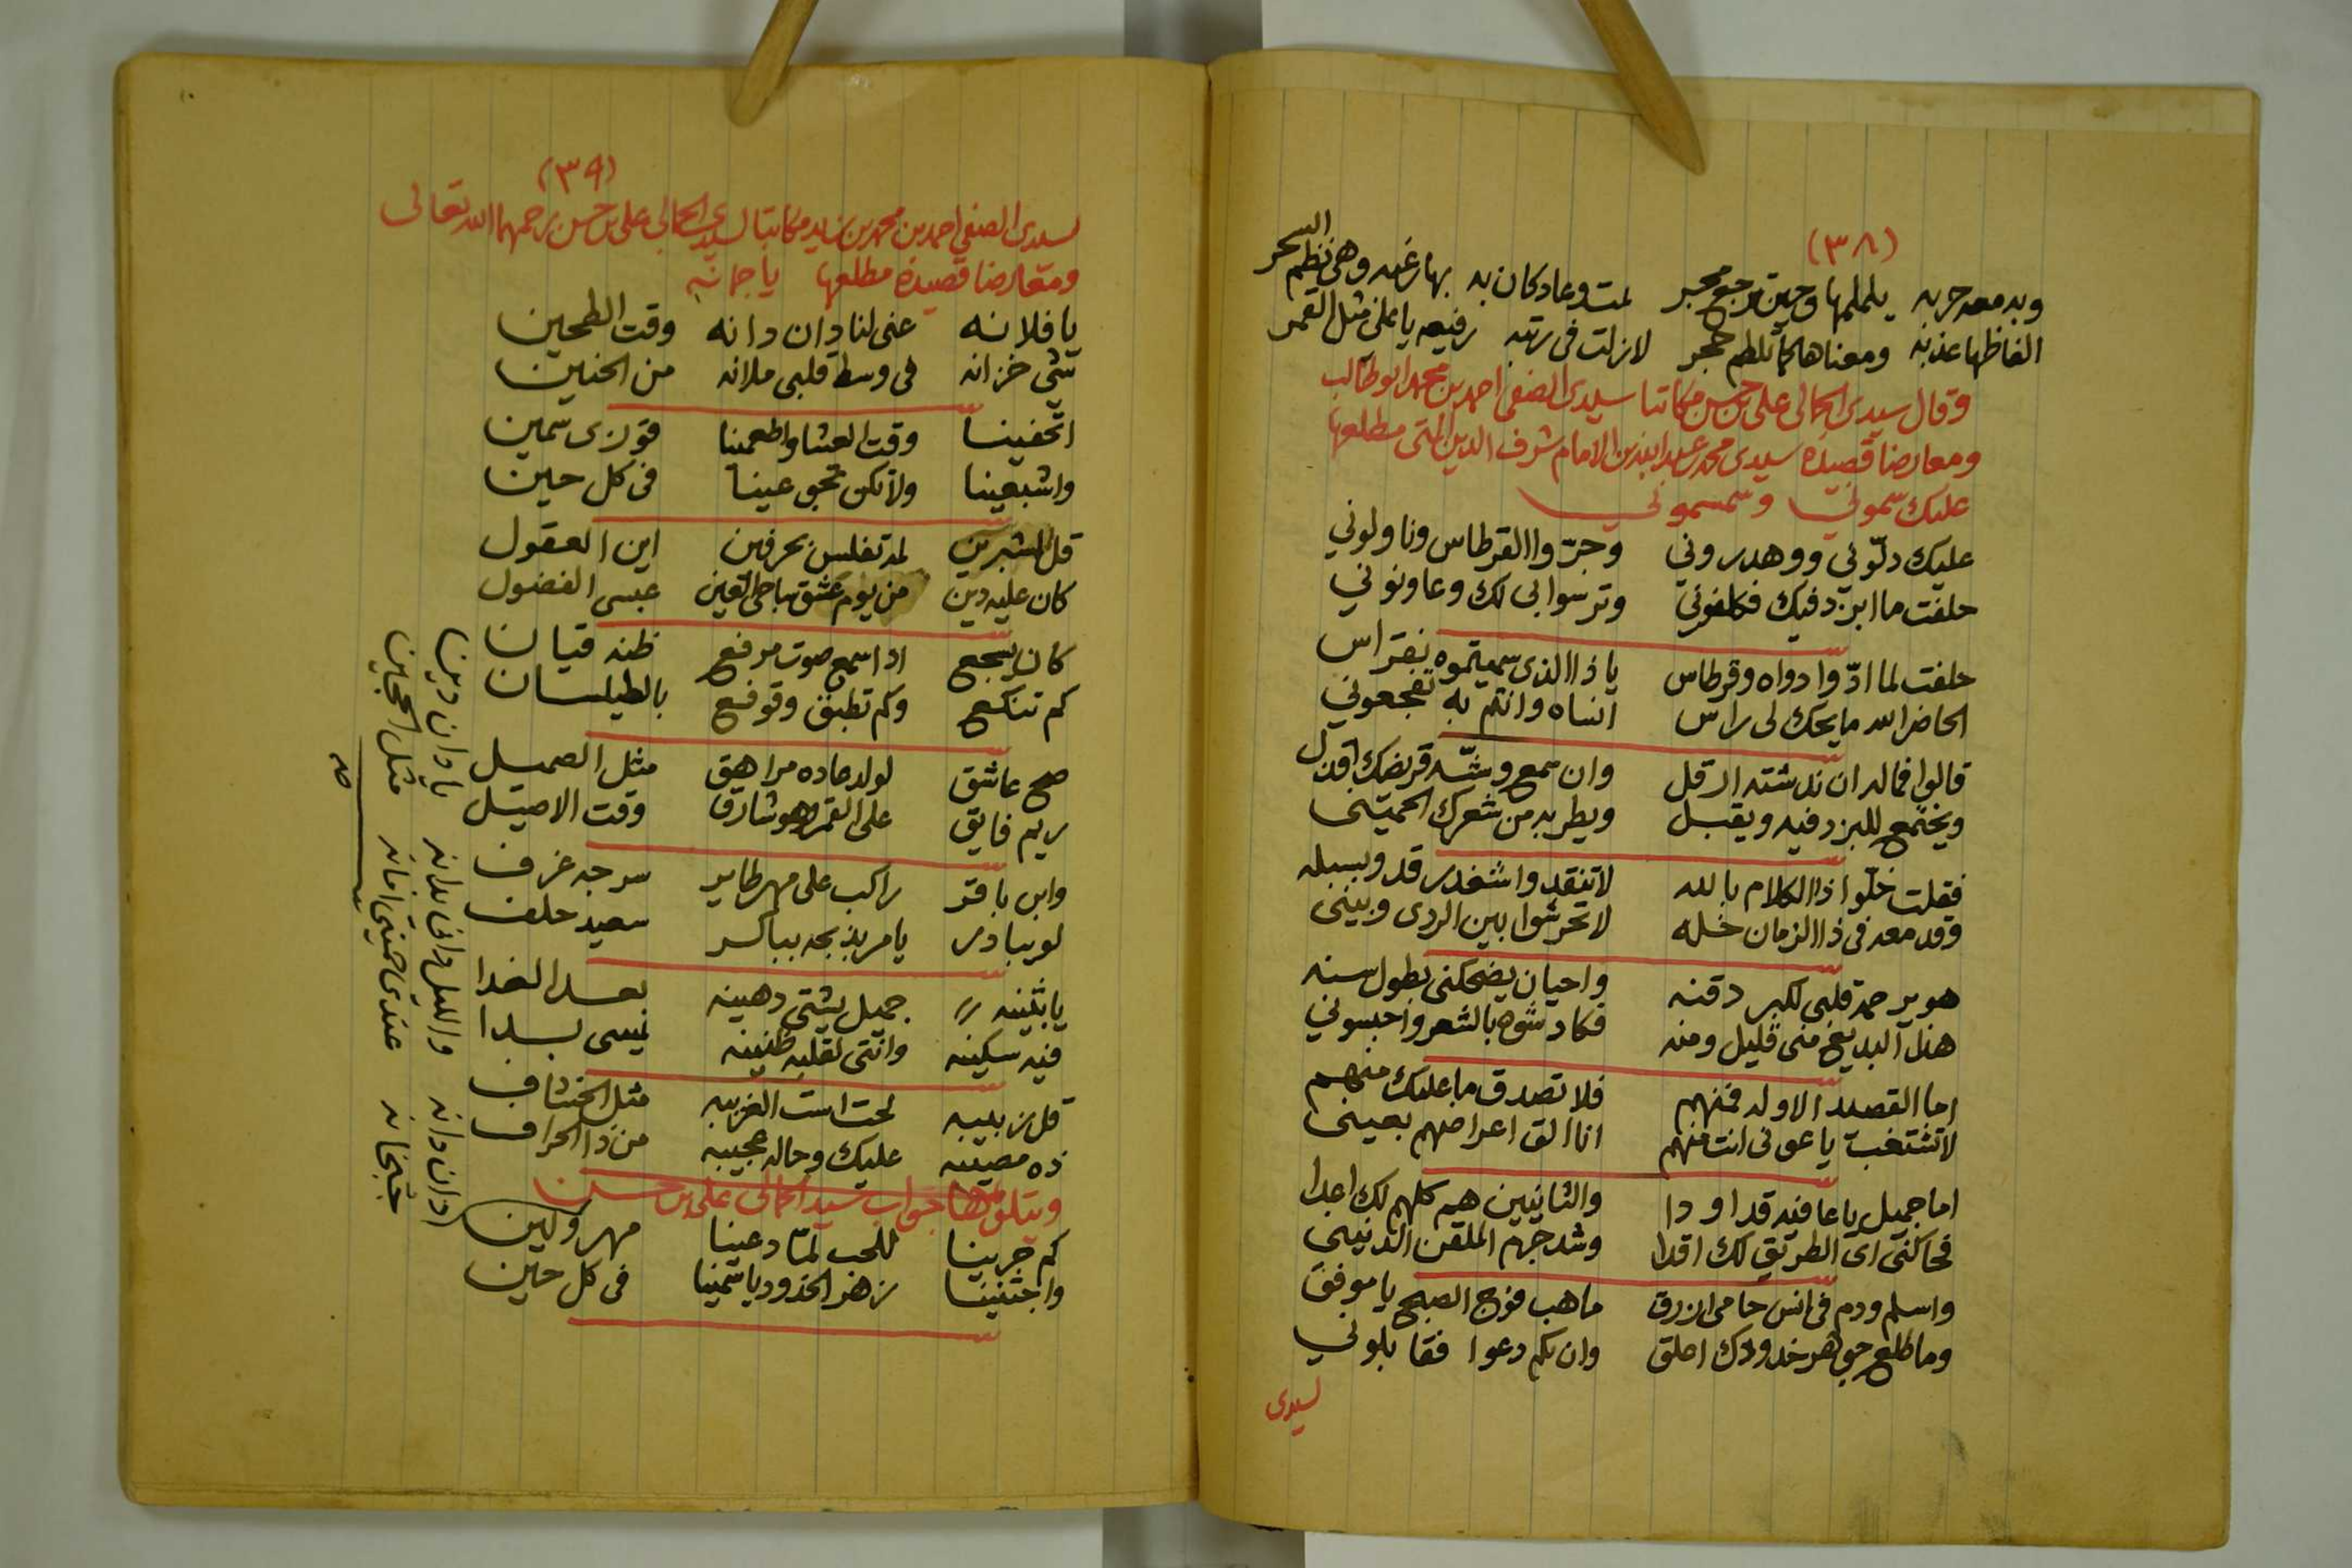 (٣٨)
وبه معه حربه يلملمها وحين يرجع محبر لمت وعاد كان به بها رغبه وهي نظم السحر
الفاظها عذبه ومعناها كما نلطم حجر لا زلت في رتبه رفيعه يا علي مثل القمر
وقال سيدي الجمالي علي بن حسن مكاتبا سيدي الصفي احمد بن محمد ابو طالب
ومعارضا قصيدة سيدي محمد عبدالله بن الامام شرف الدين التي مطلعها
عليك سموني وسمسموني
عليك دلوني ووهدروني وجروا القرطاس وناولوني
حلفت ما ابرد فيك فكلفوني وترسوا بي لك وعاونوني
حلفت لما ادوا دواه وقرطاس يا ذا الذي سميتموه بفراس
الحاضر الله ما يحك لي راس انساه وانتم به تفجعوني
قالوا فماله ان ندشته ارقل وان سمع وشه قريضك اقبل
ويجتمع للبرد فيه ويقبل ويطربه من شعرك الحميني
فقلت خلوا ذا الكلام بالله لا تنقدوا شغدر قد وبسبله
وقد معه في ذا الزمان خله لا تحرشوا بين الردى وبيني
هو يرحمه قلبي لكبر دقنه واحيان يضحكني بطول سنه
هذا البديع مني قليل ومنه فكادشوه بالشعر واحبسوني
اما القصيد الاوله فمنهم فلا تصدق ما عليك منهم
لا تشتغب يا عوني انت منهم انا الق اعراضهم بعيني
اما جميل يا عافيه قد اودا والثانيين هم كلهم لك اعدا
فحاكني اي الطريق لك اقدا وشدجهم الملقن الدنيني
واسلم ودم في انس حامي ازرق ما هب فوج الصبح يا موفق
وما طلع جوهر خدودك احلق وان بكم دعوا فقابلوني
لسيدي
(٣٩)
لسيدي الصفي احمد بن محمد بن زيد مكاتبا لسيدي الجمالي علي بن حسن رحمهما الله تعالى
ومعارضا قصيدة مطلعها يا جمانه
يا فلانه غني لنا دان دانه وقت الطحين
شي خزانه في وسط قلبي ملانه من الحنين
اتحفينا وقت العشا واطعمينا قوزي سمين
واشبعينا ولا تكن تحجو عينا في كل حين
قل لشبرين لمه تفلس بحرفين اين العقول
كان عليه دين من يوم عشق ساحلي العين عبسي الفضول
كان يسجع اذا سمع صوت مرفع ظنه قيان
كم تنكع وكم تطبن وقوقع بالطيلسان
صح عاشق لولد عاده مراهق مثل الصميل
ريم فايق على القمر وهو شارق وقت الاصيل
وابن باقر راكب على مهر طاير سرجه غرف
لو يبادر يا مر يذبحه بباكر سعيد حلف
يا بثينه جميل يشتي دهينه بعد الغدا
فيه سكينه وانتي لقلبه ظنينه نميسى بدا
قل زبيبه لحت است الغريبه مثل الخشاف
ذه مصيبه عليك وحاله عجيبه من ذا الحراف
ويتلوها جواب سيدي الجمالي علي بن حسن
كم جرينا للحب لما دعينا مهرولين
واجتنينا زهر الخدود يا شمينا في كل حين
ادان دانه والليل داني بدانه يا دان دينا
جبخانه عندي حميتي افانه مثل العجين
صح